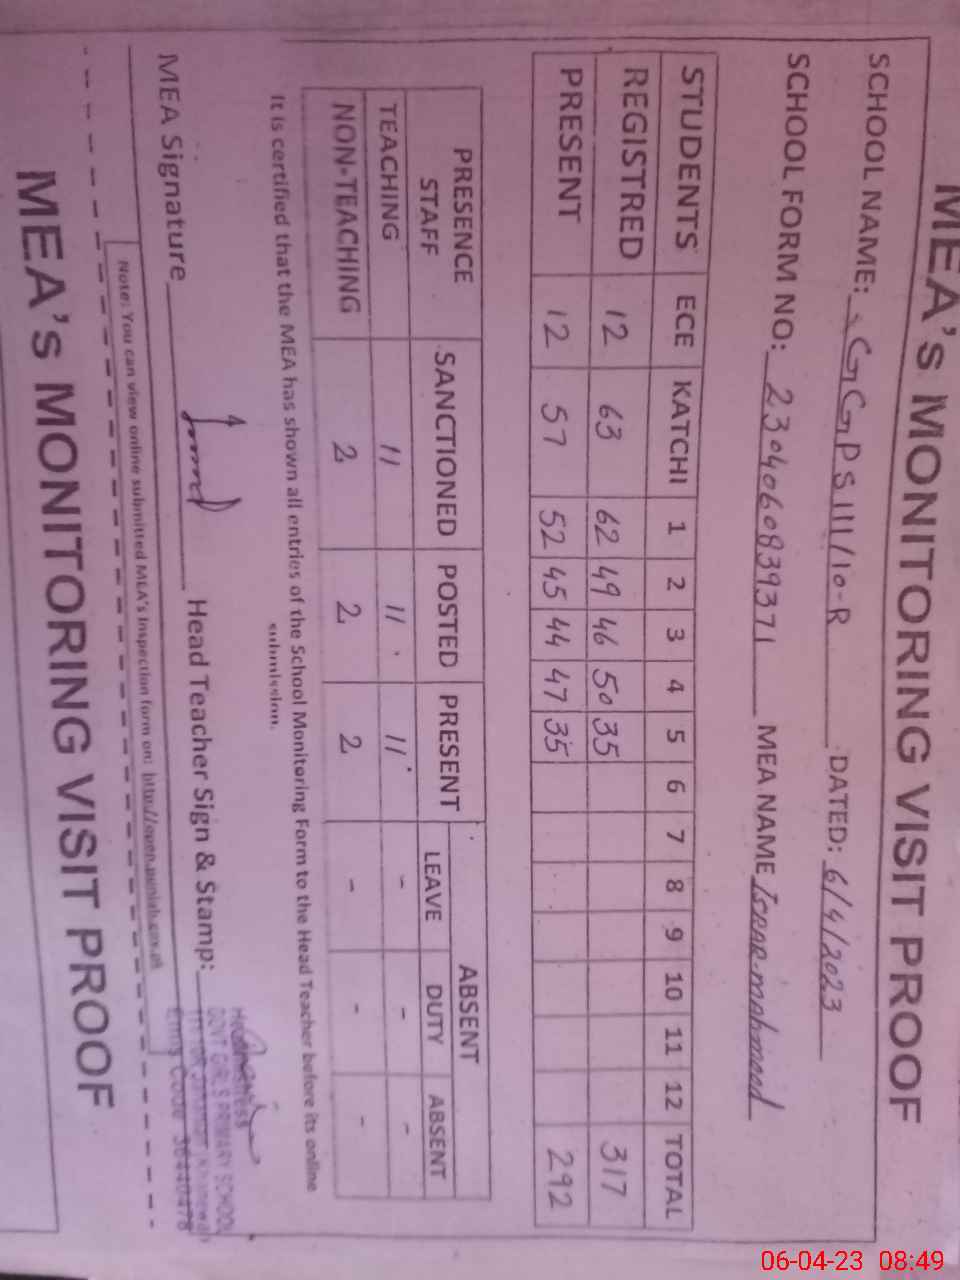 MEA's MONITORING VISIT PROOF
SCHOOL NAME: GGPS 111/10-R DATED: 6/4/2023
SCHOOL FORM NO: 230406083937 1 MEA NAME Israr mahmood
STUDENTS ECE KATCHI 1 2 3 4 5 6 7 8 9 10 11 12 TOTAL
REGISTRED 12 63 62 49 46 50 35 317
PRESENT 12 57 52 45 44 47 35 292
PRESENCE STAFF SANCTIONED POSTED PRESENT ABSENT
LEAVE DUTY ABSENT
TEACHING 11 11 11 - - -
NON-TEACHING 2 2 2 - - -
It is certified that the MEA has shown all entries of the School Monitoring Form to the Head Teacher before its online
submission.
MEA Signature Head Teacher Sign & Stamp:
GOVT GIRLS PRIMARY SCHOOL
Emis Code 36440478
Note: You can view online submitted MEA's Inspection form on: http://open.punjab.gov.pk
MEA's MONITORING VISIT PROOF
06-04-23 08:49